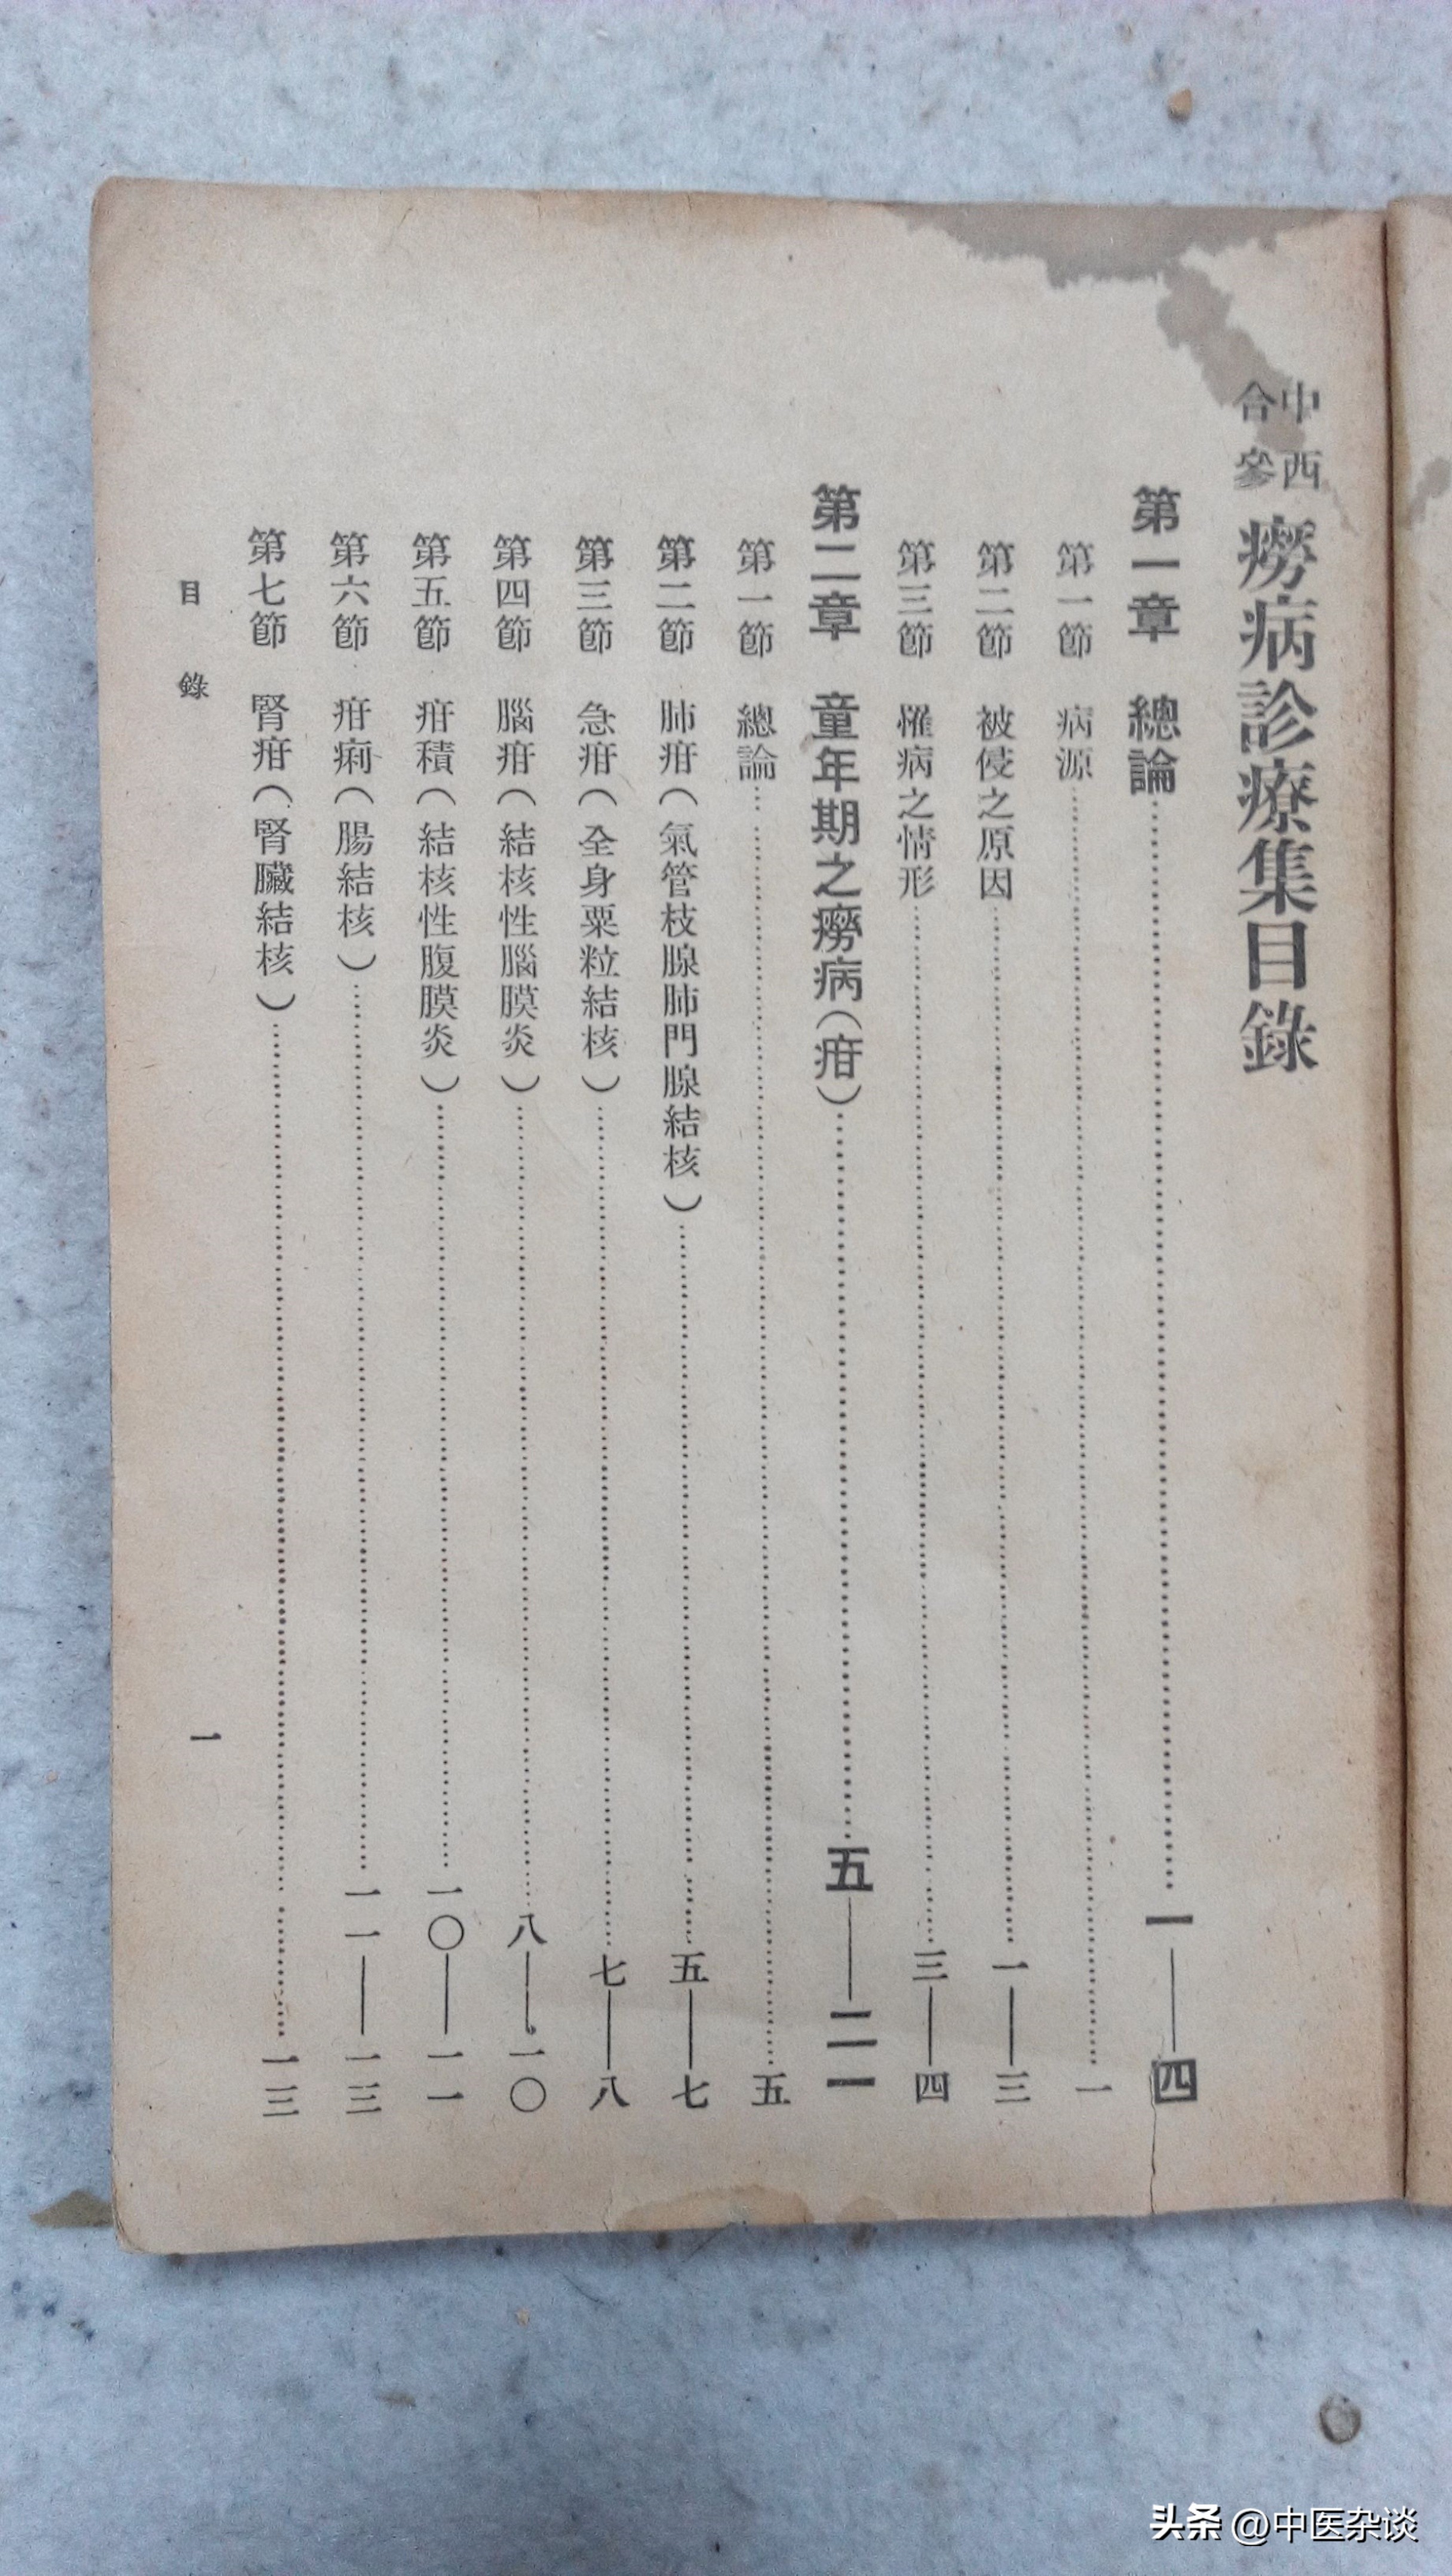 中西合參 癆病診療集目錄
第一章 總論……一——四
第一節 病源……一
第二節 被侵之原因……一——三
第三節 罹病之情形……三——四
第二章 童年期之癆病(疳)……五——二一
第一節 總論……五
第二節 肺疳(氣管枝腺肺門腺結核)……五——七
第三節 急疳(全身粟粒結核)……七——八
第四節 腦疳(結核性腦膜炎)……八——一〇
第五節 疳積(結核性腹膜炎)……一〇——一一
第六節 疳痢(腸結核)……一一——一三
第七節 腎疳(腎臟結核)……一三
目錄 一
头条 @中医杂谈